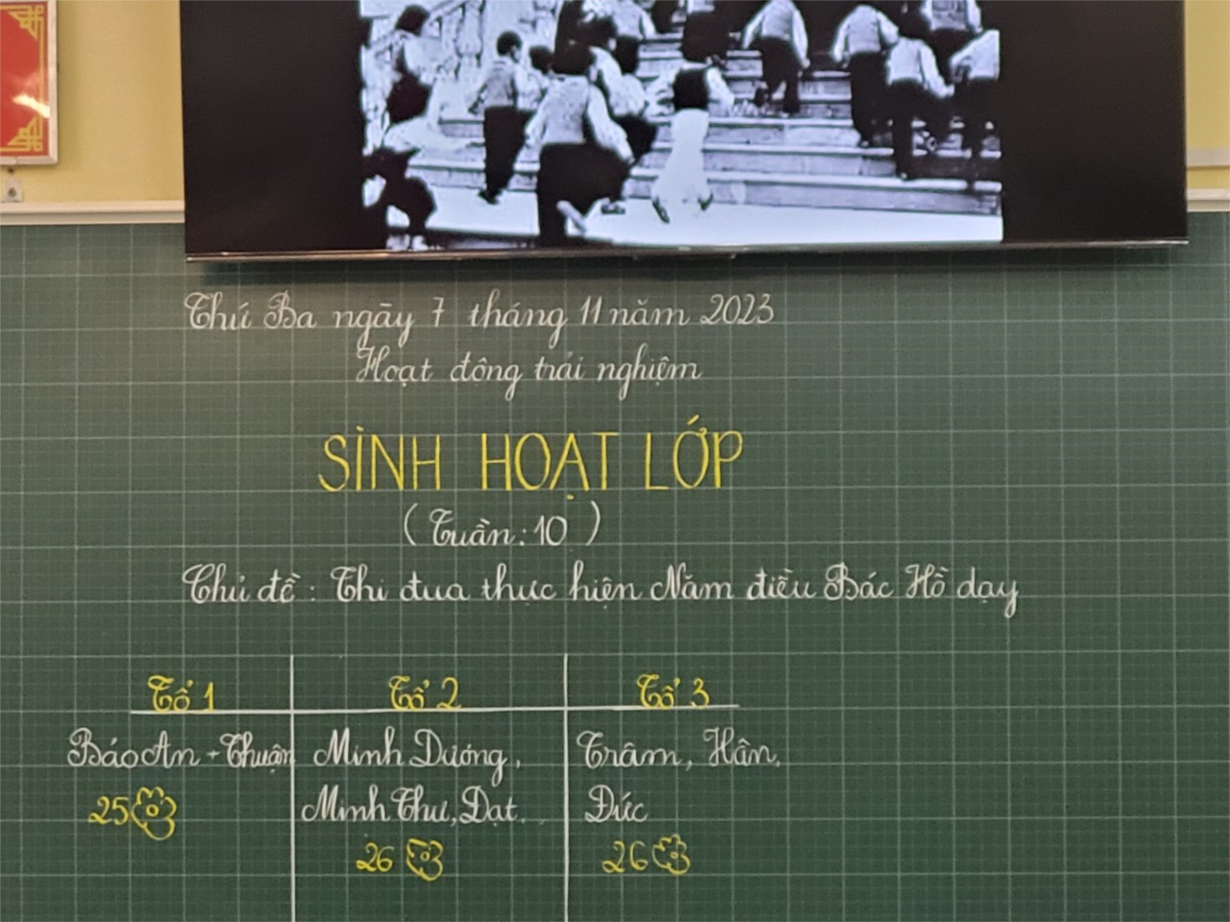 Thứ Ba ngày 7 tháng 11 năm 2023
Hoạt động trải nghiệm
SÌNH HOẠT LỚP
(Tuần: 10)
Chủ đề: Thi đua thực hiện Năm điều Bác Hồ dạy
Tổ 1 Tổ 2 Tổ 3
Bảo An + Thuận Minh Dương, Trâm, Hân,
Minh Thư, Đạt. Đức
25
26 26